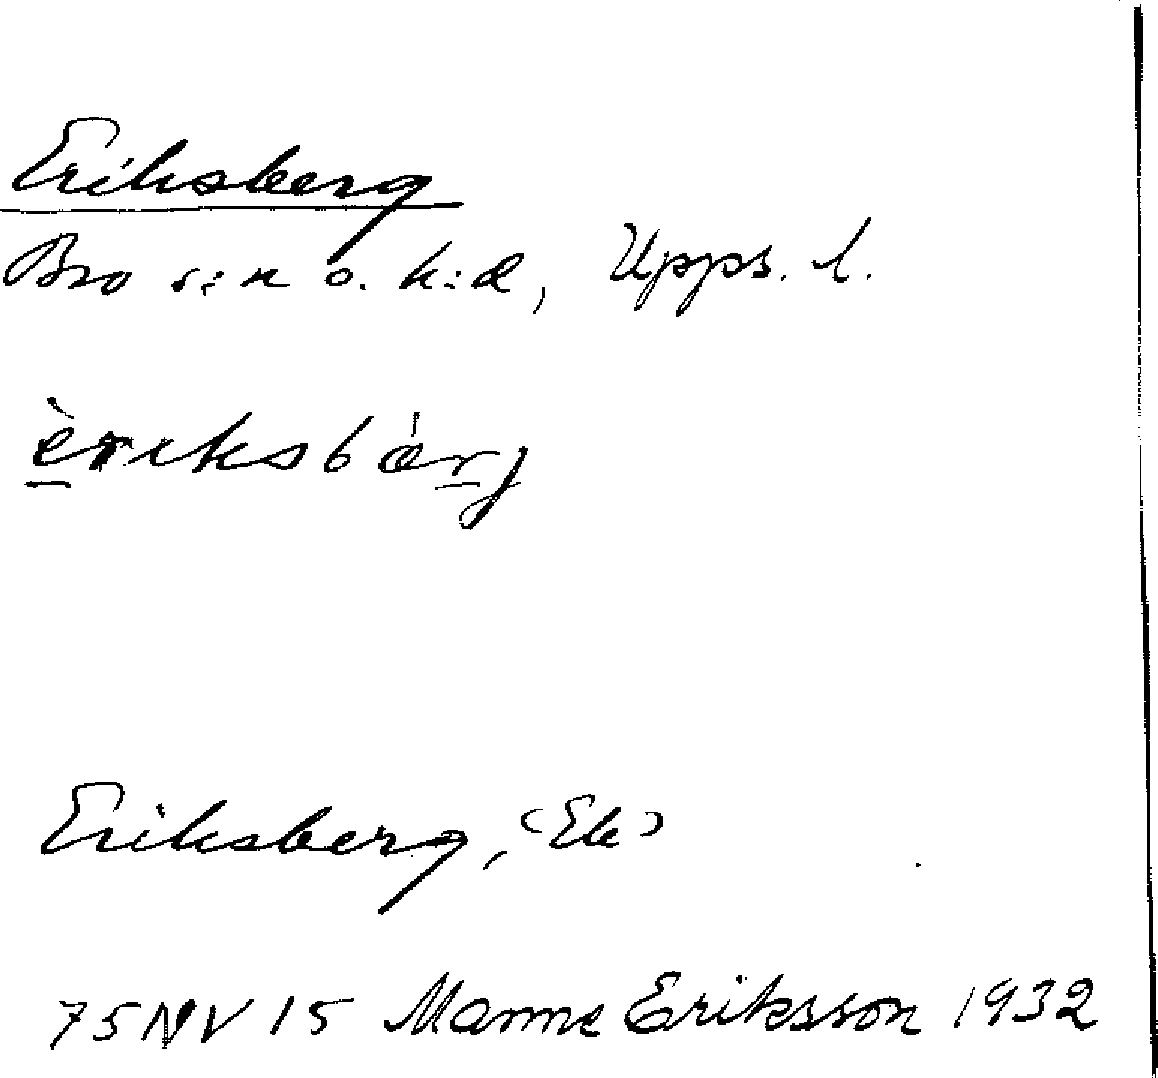 Eriksberg
Bro s:n o. h:d, Upps. l.
èriksbárj
Eriksberg, (Ek)
75NV 15 Manne Eriksson 1932